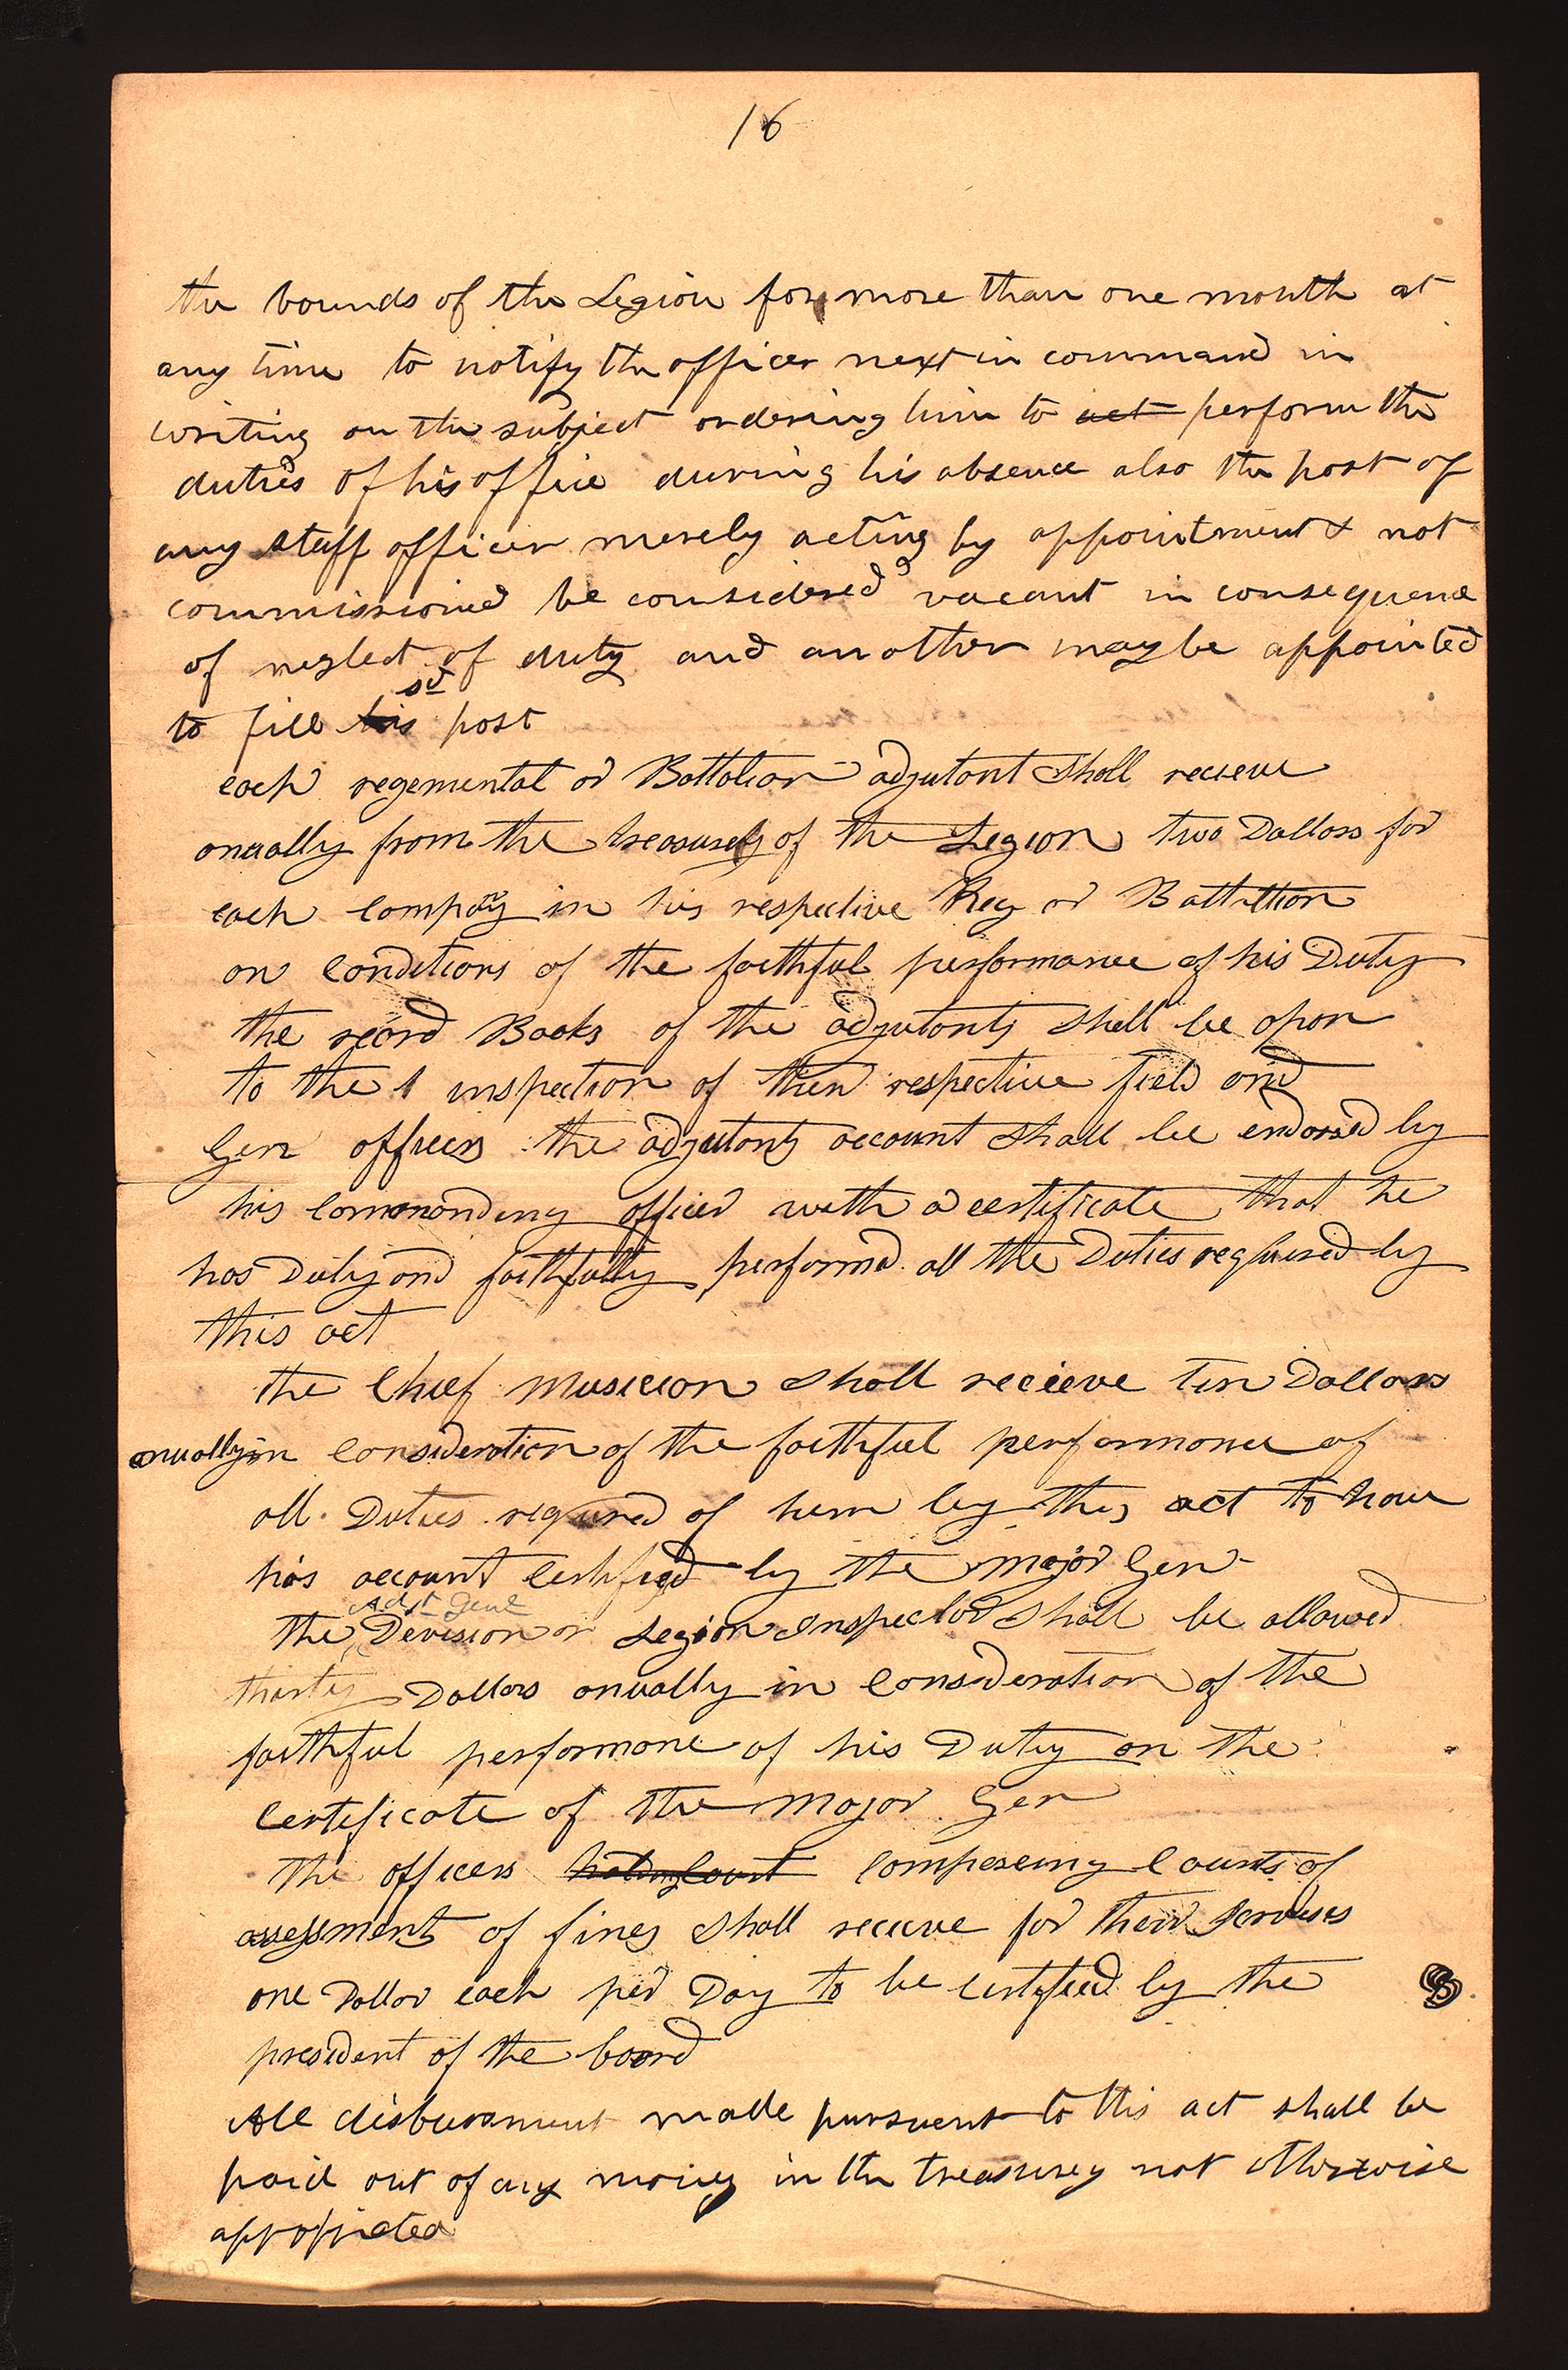 16
the bounds of the Legion for more than one month at
any time to notify the officer next in command in
writing on the subject ordering him to act perform the
duties of his office during his absence also the post of
any staff officer merely acting by appointment & not
commissioned be considered vacant in consequence
of neglect of duty and another may be appointed
sd
to fill his post
each regemental or Battalion adjutant shall recieve
anually from the treasurey of the Legion two Dollars for
each company in his respective Reg or Battalion
on conditions of the faithful performance of his Duty
the record Books of the adjutants shall be opon
to the inspection of their respective field and
Gen officers the adjutants account shall be endorsed by
his commanding officer with a certificate that he
has Duly and faithfully performed all the Duties required by
this act
the Chief Musician shall recieve ten Dollars
anually in consideration of the faithful performance of
all Duties required of him by this act to have
his account certified by the Major Gen
Adjt Genl
the Devision or Legion Inspector shall be allowed
thirty Dollars anually in consideration of the
faithful performance of his Duty on the
Certificate of the Major Gen
the officers holding Court composeing Courts of
assessment of fines shall recieve for their services
one Dollar each per Day to be certified by the
president of the board
All disbursment made pursuent to this act shall be
paid out of any money in the treasurey not otherwise
appropriated